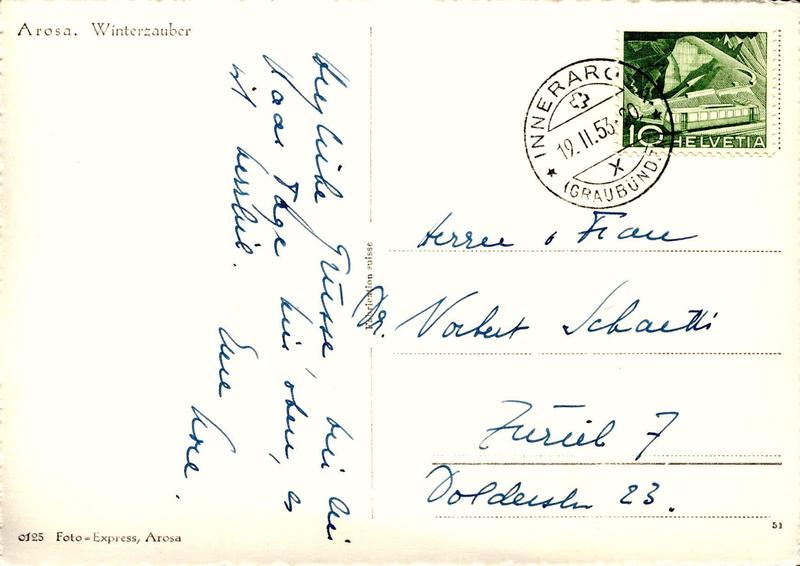 Arosa. Winterzauber
Herzliche Grüsse, bin ein
paar Tage hier oben, es
ist herrlich. Eure
INNERAROSA
19.II.53-20
X
(GRAUBÜND.)
10 HELVETIA
Herrn u. Frau
Dr. Norbert Schaetti
Zürich 7
Dolderstr 23.
Fabrication suisse
51
0125 Foto-Express, Arosa